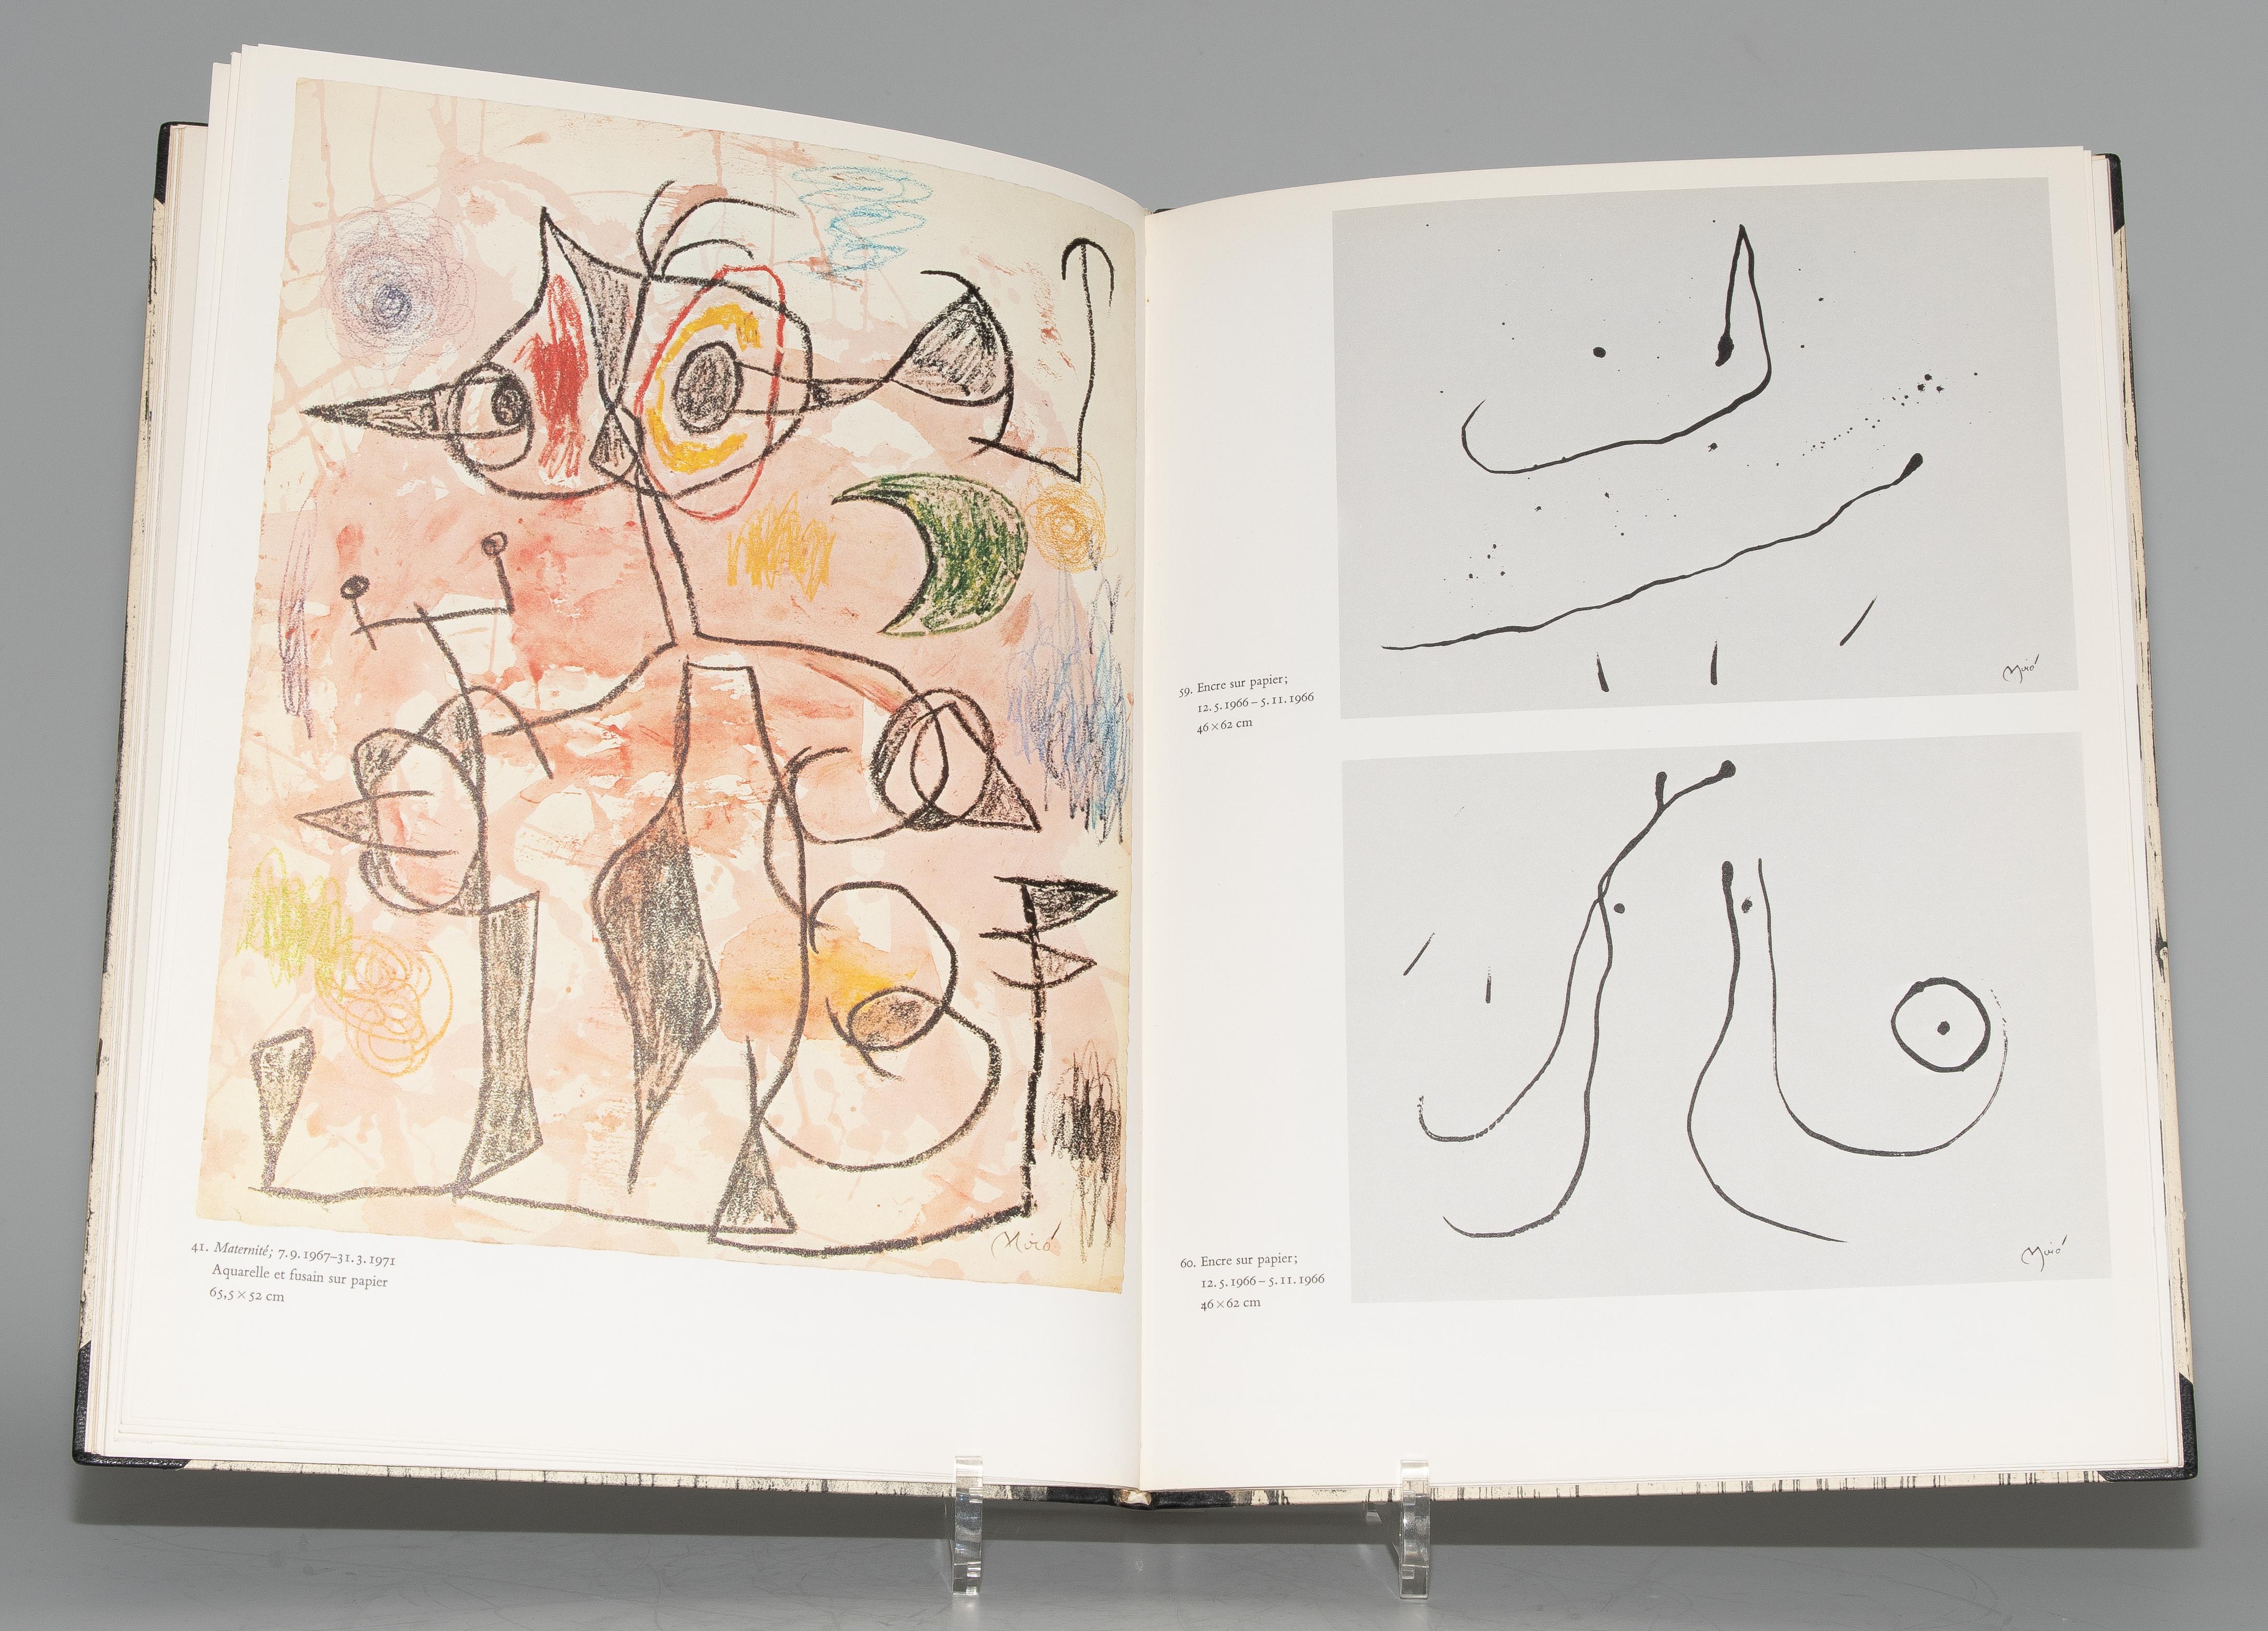 Miró
41. Maternité; 7.9.1967–31.3.1971
Aquarelle et fusain sur papier
65,5×52 cm
59. Encre sur papier;
12.5.1966–5.11.1966
46×62 cm
Miró
60. Encre sur papier;
12.5.1966–5.11.1966
46×62 cm
Miró